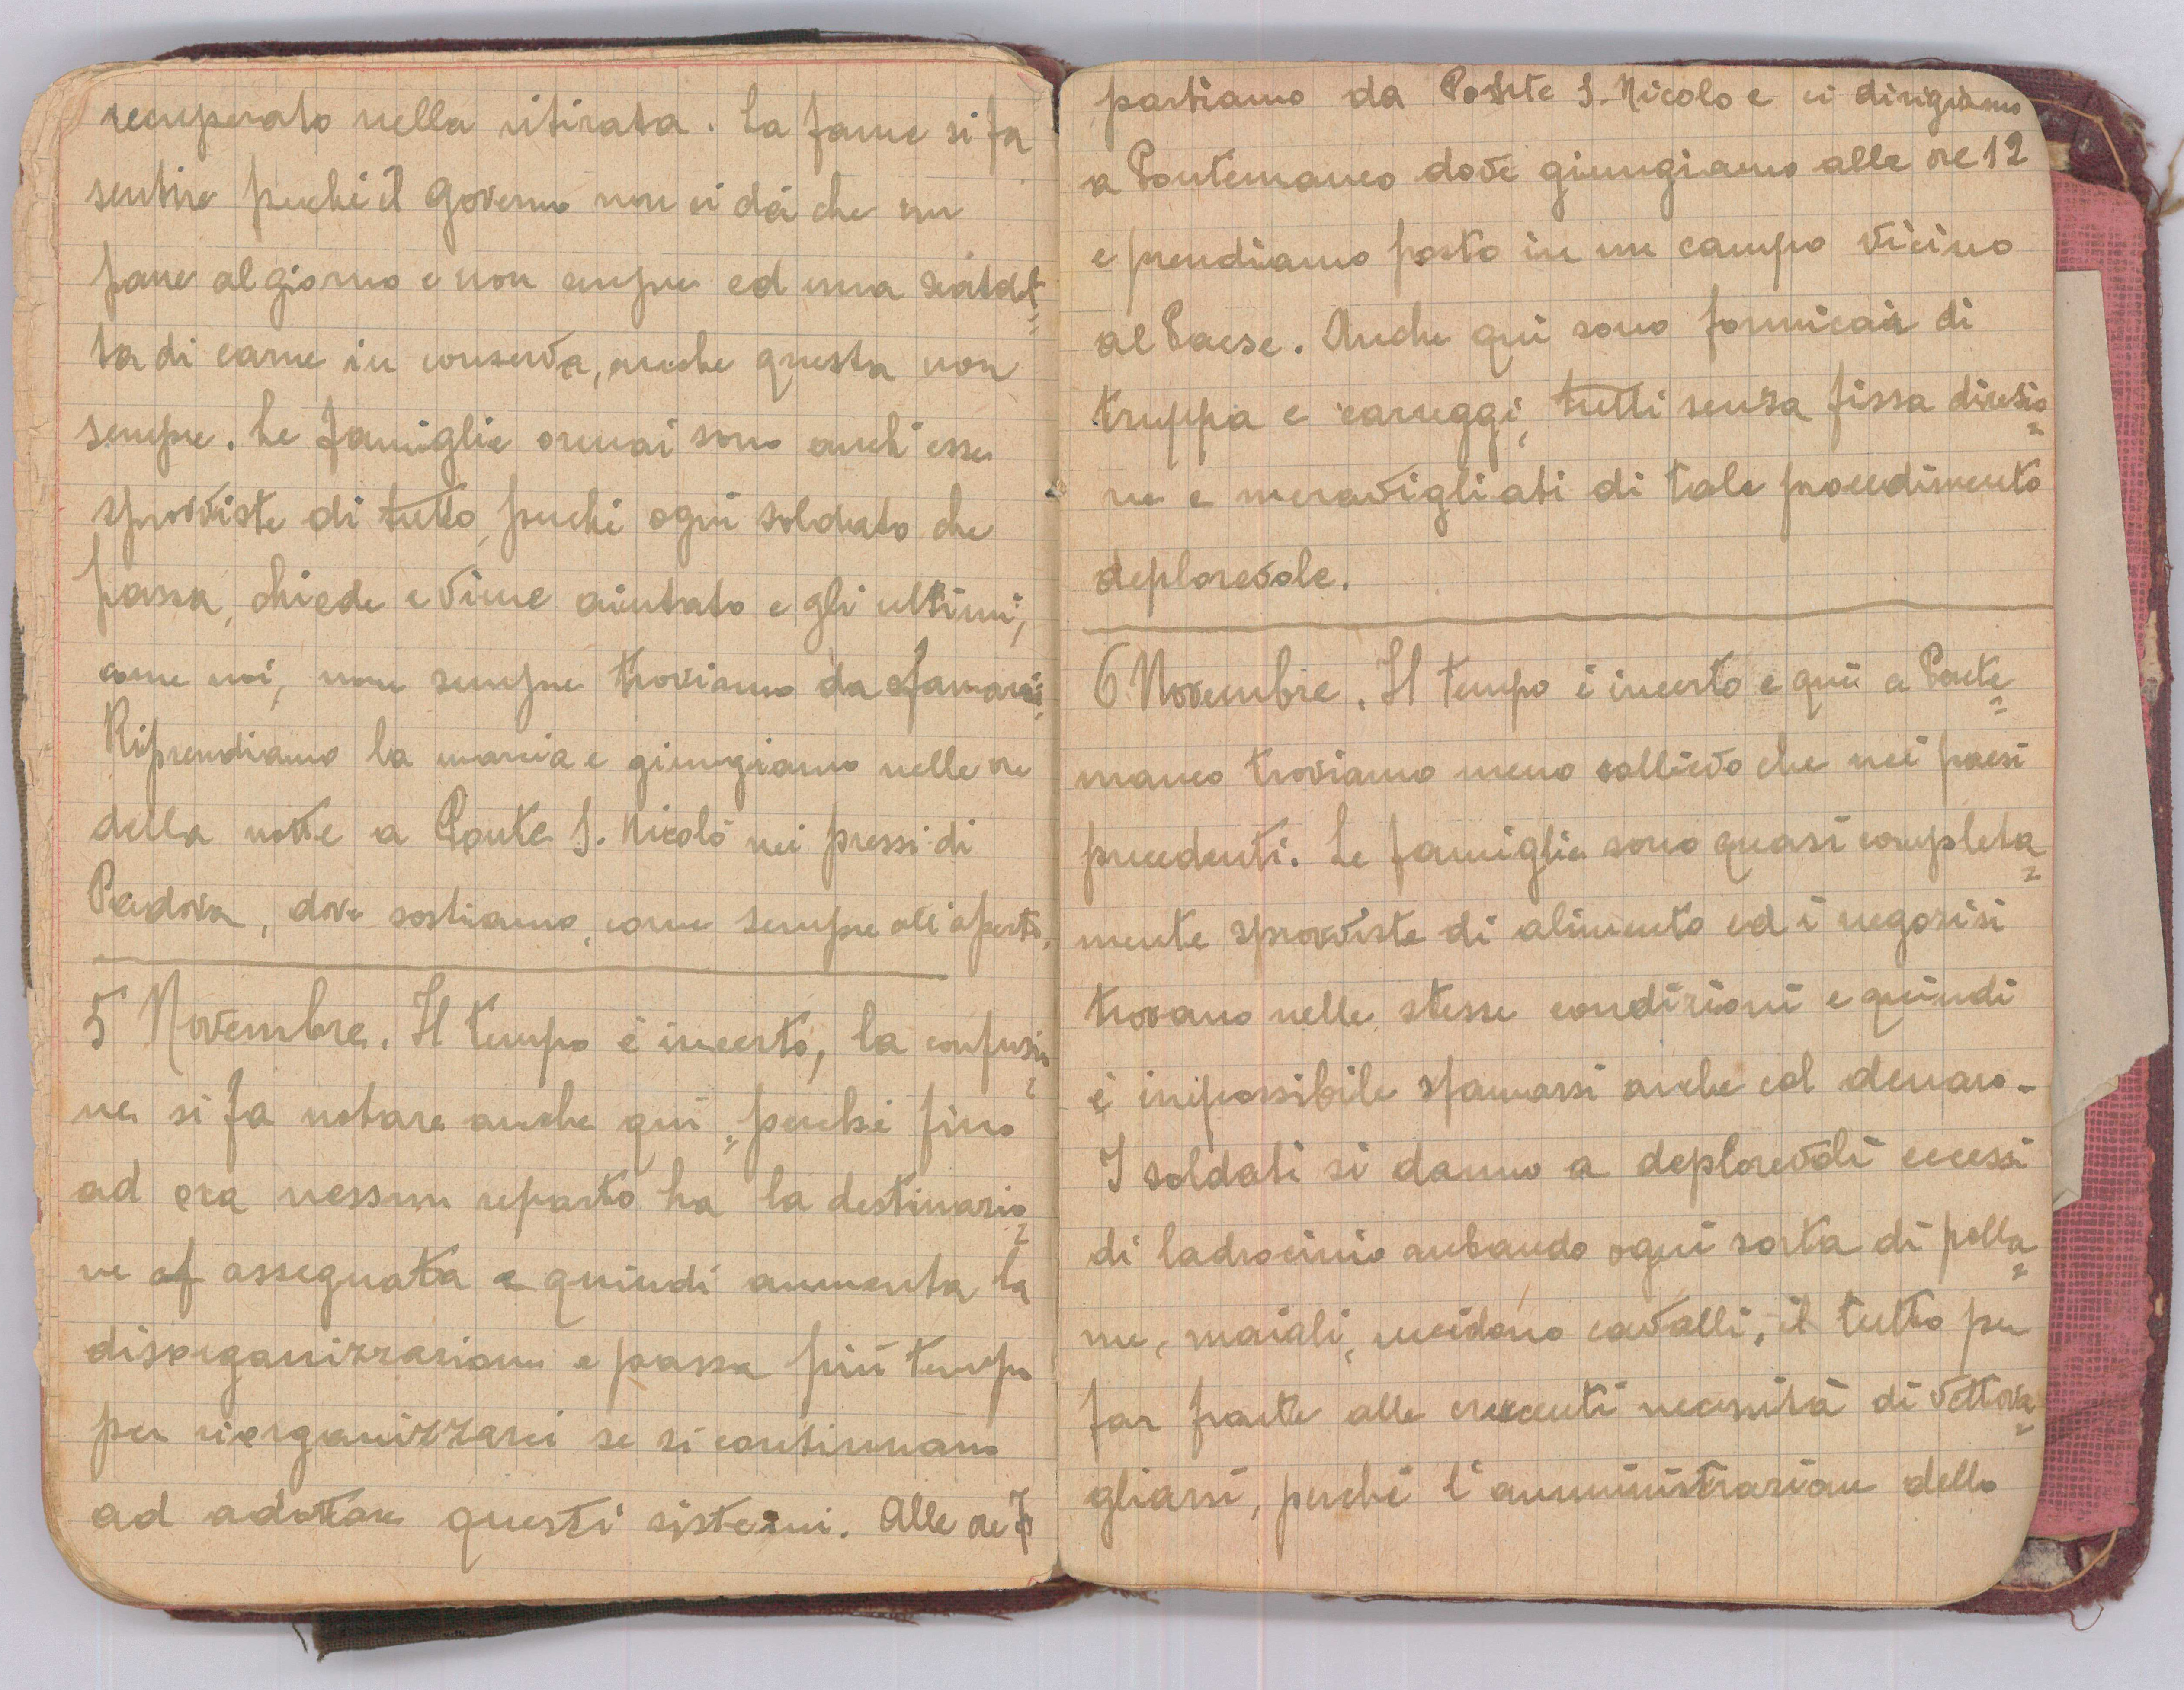 recuperato nella ritirata. La fame si fa
sentire perchè il Governo non ci dà che un
pane al giorno e non sempre ed una scatolet=
ta di carne in conserva, anche questa non
sempre. Le famiglie ormai sono anch'esse
sprovviste di tutto, perchè ogni soldato che
passa, chiede e viene aiutato e gli ultimi,
come noi, non sempre troviamo da sfamarsi.
Riprendiamo la marcia e giungiamo nelle ore
della notte a Ponte S. Nicolò nei pressi di
Padova, dove sostiamo, come sempre all'aperto.
5 Novembre. Il tempo è incerto, la confusio=
ne si fa notare anche qui, perchè fino
ad ora nessun reparto ha la destinazio=
ne assegnata e quindi aumenta la
disorganizzazione e passa più tempo
per riorganizzarci se si continuano
ad adottare questi sistemi. Alle ore 7
partiamo da Ponte S. Nicolo e ci dirigiamo
a Pontemanco dove giungiamo alle ore 12
e prendiamo posto in un campo vicino
al Paese. Anche qui sono formicai di
truppa e carreggi, tutti senza fissa direzio=
ne e meravigliati di tale procedimento
deplorevole.
6 Novembre. Il tempo è incerto e qui a Ponte=
manco troviamo meno sollievo che nei paesi
precedenti. Le famiglie sono quasi completa=
mente sprovviste di alimento ed i negozi si
trovano nelle stesse condizioni e quindi
è impossibile sfamarsi anche col denaro.
I soldati si danno a deplorevoli eccessi
di ladrocinio rubando ogni sorta di polla=
me, maiali, uccidono cavalli, il tutto per
far fronte alle crescenti necessità di vettova=
gliarsi, perchè l'amministrazione dello